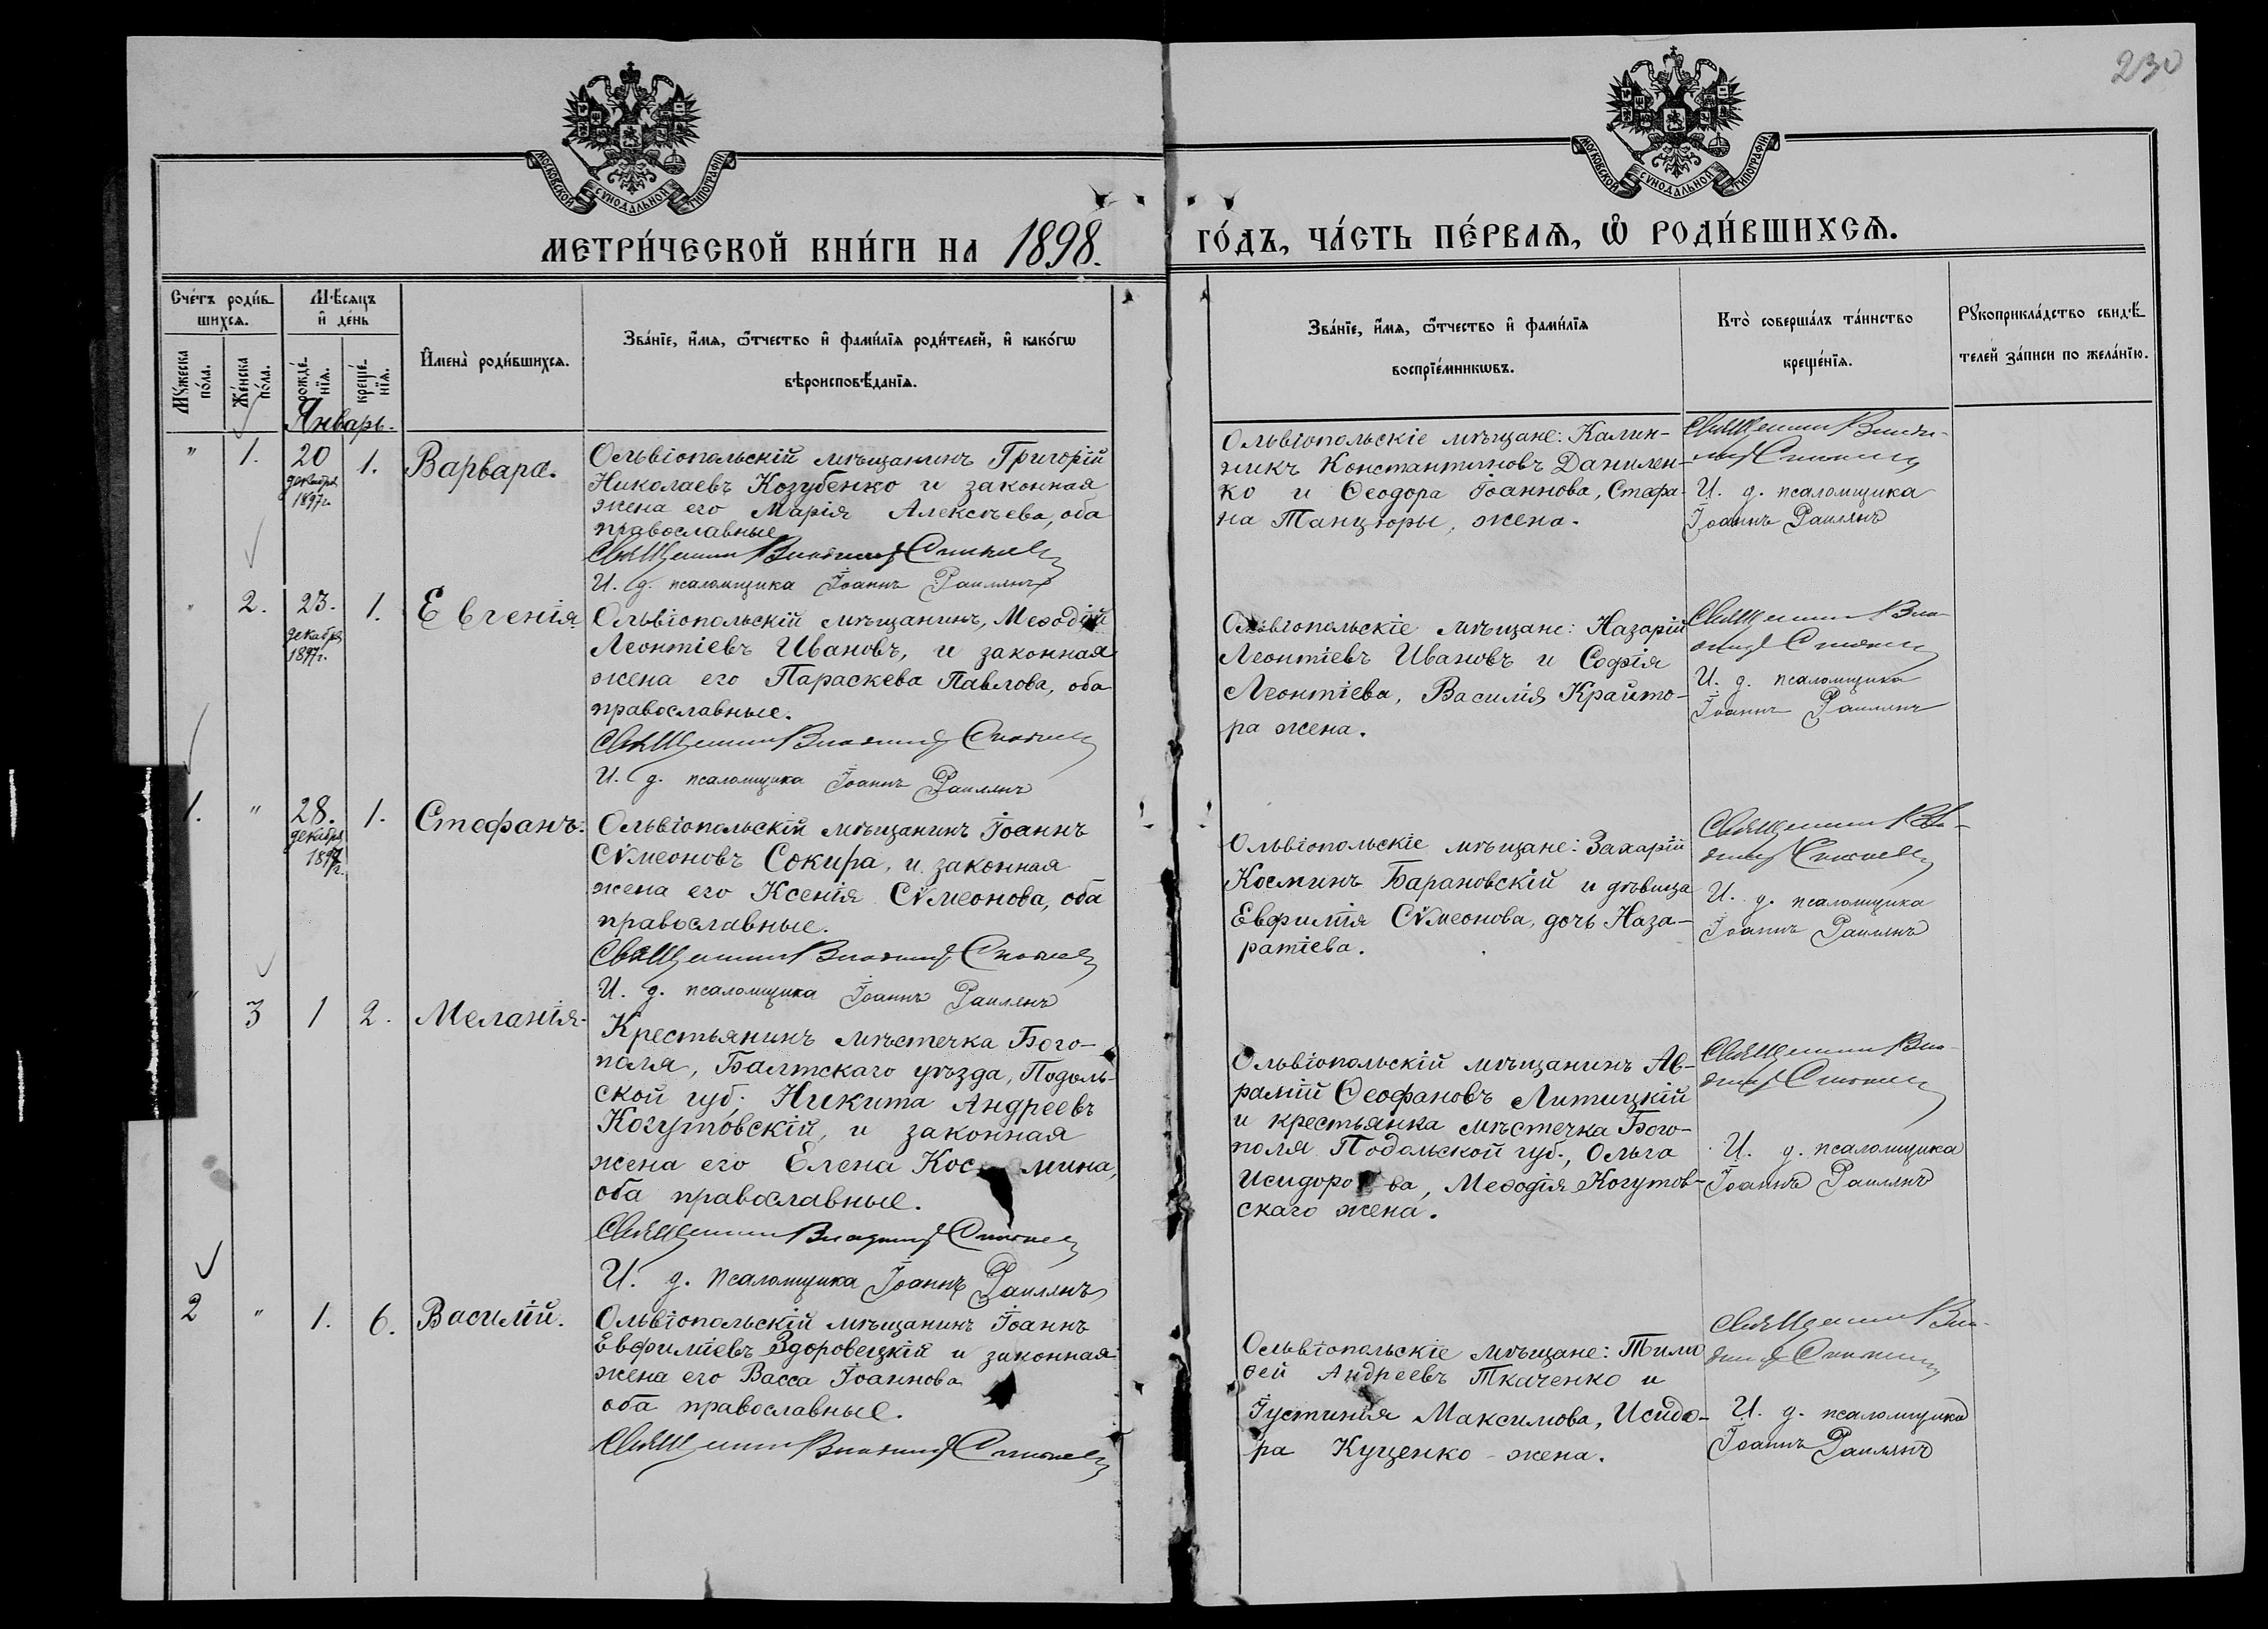 230
МОСКОВСКОЙ СѴНОДАЛЬНОЙ ТИПОГРАФІИ
МОСКОВСКОЙ СѴНОДАЛЬНОЙ ТИПОГРАФІИ
МЕТРИ́ЧЕСКОЙ КНИ́ГИ НА 1898.
ГО́ДЪ, ЧА́СТЬ ПЕ́РВАѦ, Ѽ РОДИ́ВШИХСѦ.
Сче́тъ роди́в-
шихсѧ.
Мѣ́сяцъ
и҆ де́нь
Мꙋ́жеска
по́ла.
Же́нска
по́ла.
рожде́-
нїѧ.
креще́-
нїѧ.
И҆мена̀ роди́вшихсѧ.
Зва́нїе, и҆́мѧ, ѻ҆́тчество и҆ фами́лїѧ роди́телей, и҆ како́гѡ
вѣроисповѣ́данїѧ.
Зва́нїе, и҆́мѧ, ѻ҆́тчество и҆ фами́лїѧ
воспрїе́мникѡвъ.
Кто̀ соверша́лъ та́инство
креще́нїѧ.
Рꙋкоприкла́дство свидѣ́-
телей за́писи по жела́нїю.
Январь.
" 1. 20 декабря 1897 г. 1. Варвара.
Ольвіопольскій мѣщанинъ Григорій
Николаевъ Козубенко и законная
жена его Марія Алексѣева, оба
православные
Священникъ
И. д. псаломщика Іоаннъ
Ольвіопольскіе мѣщане: Калин-
никъ Константиновъ Данилен-
ко и Ѳеодора Іоаннова, Стефа-
на Танцюры, жена.
Священникъ
И. д. псаломщика
Іоаннъ
" 2. 23. декабря 1897 г. 1. Евгенія.
Ольвіопольскій мѣщанинъ, Меѳодій
Леонтіевъ Ивановъ, и законная
жена его Параскева Павлова, оба
православные.
Священникъ
И. д. псаломщика Іоаннъ
Ольвіопольскіе мѣщане: Назарій
Леонтіевъ Ивановъ и Софія
Леонтіева, Василія Крайто-
ра жена.
Священникъ
И. д. псаломщика
Іоаннъ
1. " 28. декабря 1897 г. 1. Стефанъ.
Ольвіопольскій мѣщанинъ Іоаннъ
Сѵмеоновъ Сокира, и законная
жена его Ксенія Сѵмеонова, оба
православные.
Священникъ
И. д. псаломщика Іоаннъ
Ольвіопольскіе мѣщане: Захарій
Косминъ Барановскій и дѣвица
Евфимія Сѵмеонова, дочь Наза-
ратіева.
Священникъ
И. д. псаломщика
Іоаннъ
" 3 1 2. Меланія.
Крестьянинъ мѣстечка Бого-
поля, Балтскаго уѣзда, Подоль-
ской губ. Никита Андреевъ
Когутовскій, и законная
жена его Елена Кос мина,
оба православные.
Священникъ
И. д. псаломщика Іоаннъ
Ольвіопольскій мѣщанинъ Ав-
рамій Ѳеофановъ Литицкій
и крестьянка мѣстечка Бого-
поля Подольской губ., Ольга
Исидоро ва, Меѳодія Когутов-
скаго жена.
Священникъ
И. д. псаломщика
Іоаннъ
2 " 1. 6. Василій.
Ольвіопольскій мѣщанинъ Іоаннъ
Евфиміевъ Здоровецкій и законная
жена его Васса Іоаннова
оба православные.
Священникъ
Ольвіопольскіе мѣщане: Тимо
ѳей Андреевъ Ткаченко и
Іустинія Максимова, Исидо-
ра Куценко - жена.
Священникъ
И. д. псаломщика
Іоаннъ